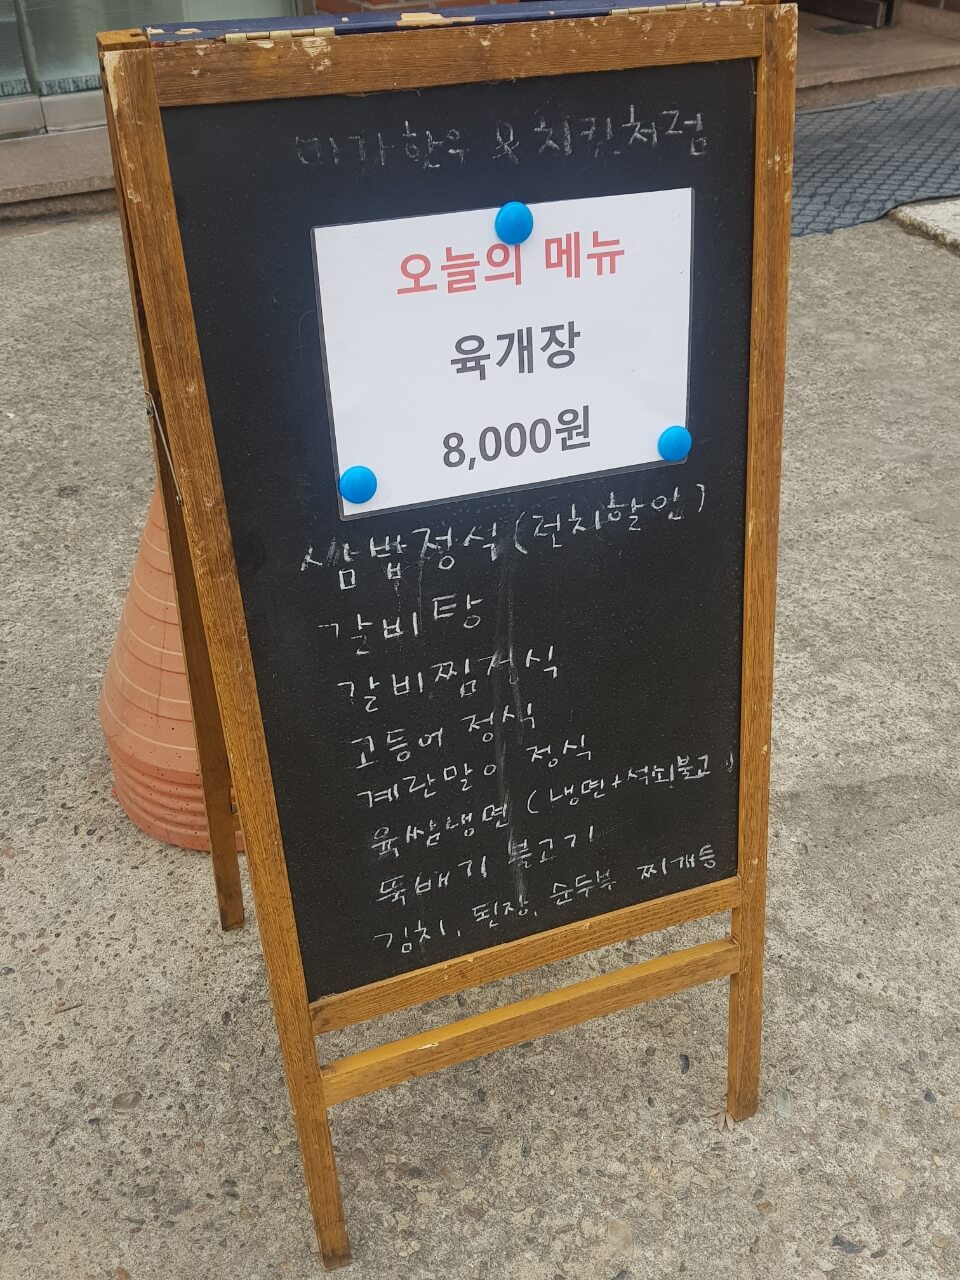 미가한우 & 치킨처럼
오늘의 메뉴
육개장
8,000원
쌈밥정식(런치할인)
갈비탕
갈비찜정식
고등어 정식
계란말이 정식
육쌈냉면 (냉면+석쇠불고)
뚝배기 불고기
김치, 된장, 순두부 찌개등